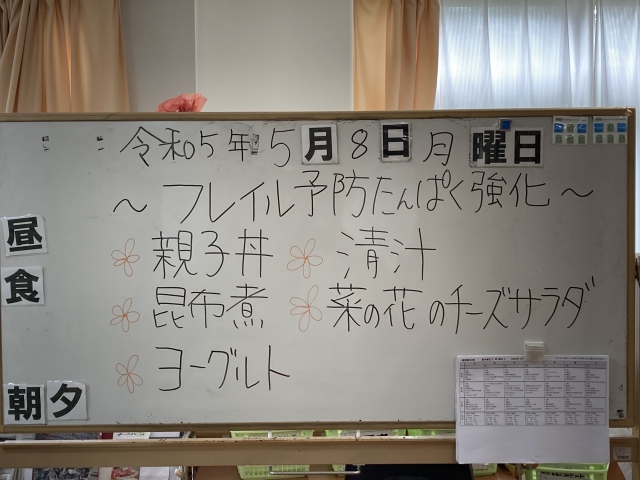 令和5年5月8日月曜日
~フレイル予防たんぱく強化~
昼食
親子丼 清汁
昆布煮 菜の花のチーズサラダ
ヨーグルト
朝夕